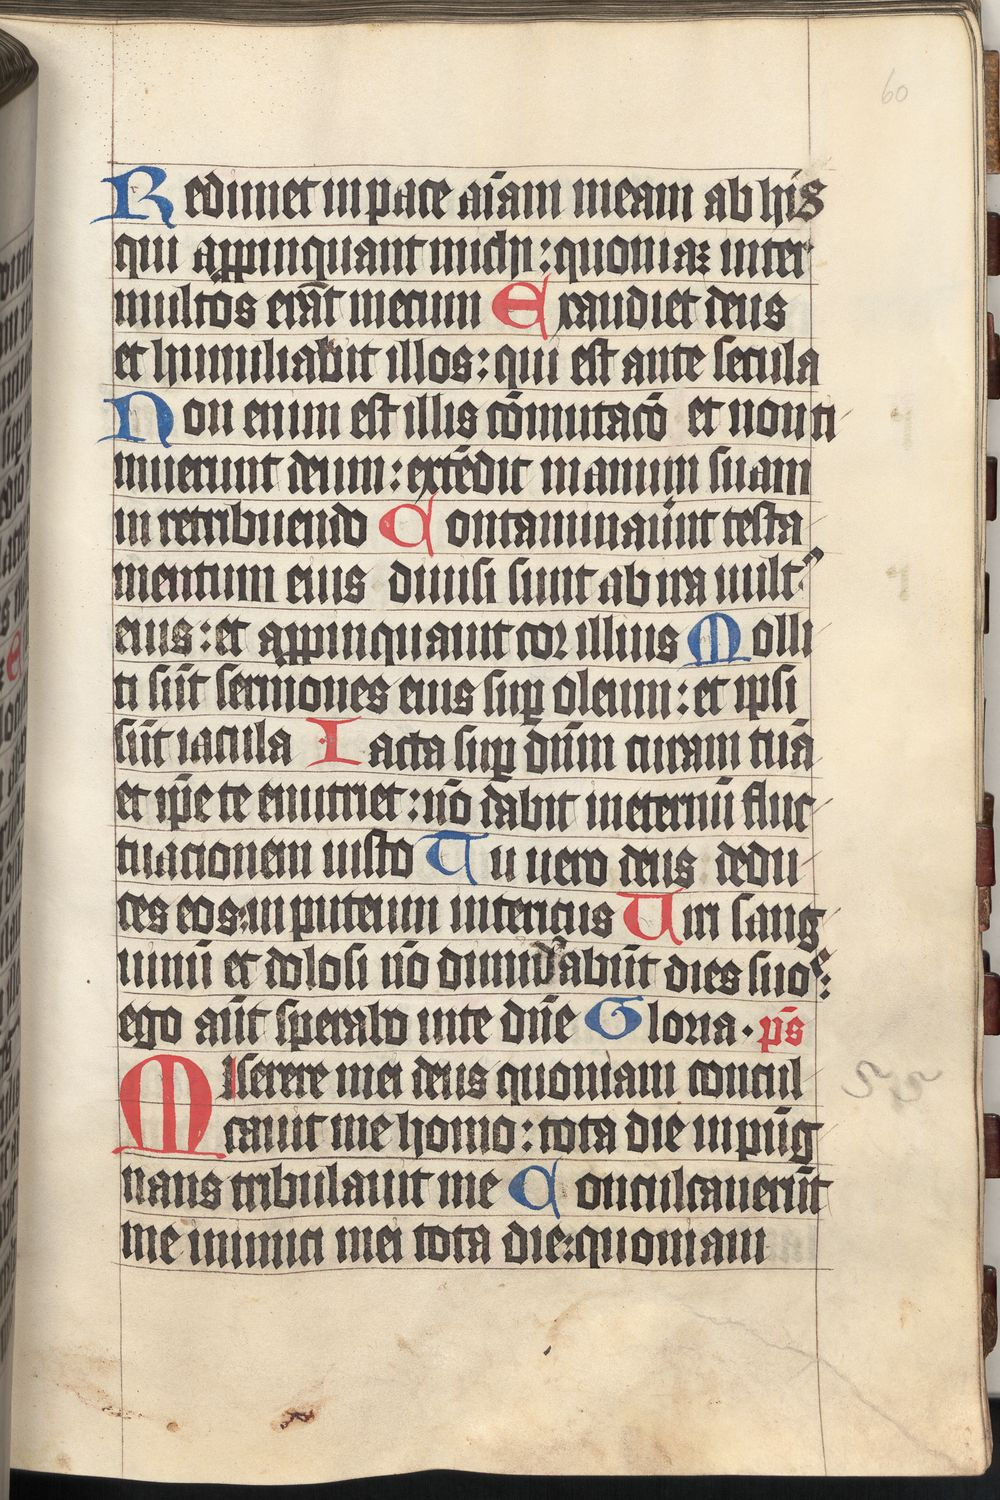 60
Redimet in pace aīam meam ab his
qui appinquant michi : quoniaꝫ inter
multos erāt mecum Exaudiet deus
et humiliabit illos : qui est ante secula
Non enim est illis cōmutacō et non ti
muerunt deum : extēdit manum suam
in retribuendo Contaminauūt testa
mentum eius diuisi sunt ab ira uult᷒
eius : et appinquauit cor illius Molli
ti sūt sermones eius suꝑ oleum : et ipsi
sūt iacula Iacta suꝑ dūm curam tuā
et ip̄e te enutriet : nō dabit ineternū fluc
tuacionem iusto Tu uero deus dedu
ces eos : in puteum interitus Uiri sang
uinū et dolosi nō dimidiabūt dies suos :
ego aūt sperabo inte dūe Gloria · p̄s
Miserere mei deus quoniam concul
cauit me homo : tota die inpūg
nans tribulauit me Conculcauerūt
me inimici mei tota die : quoniam
55